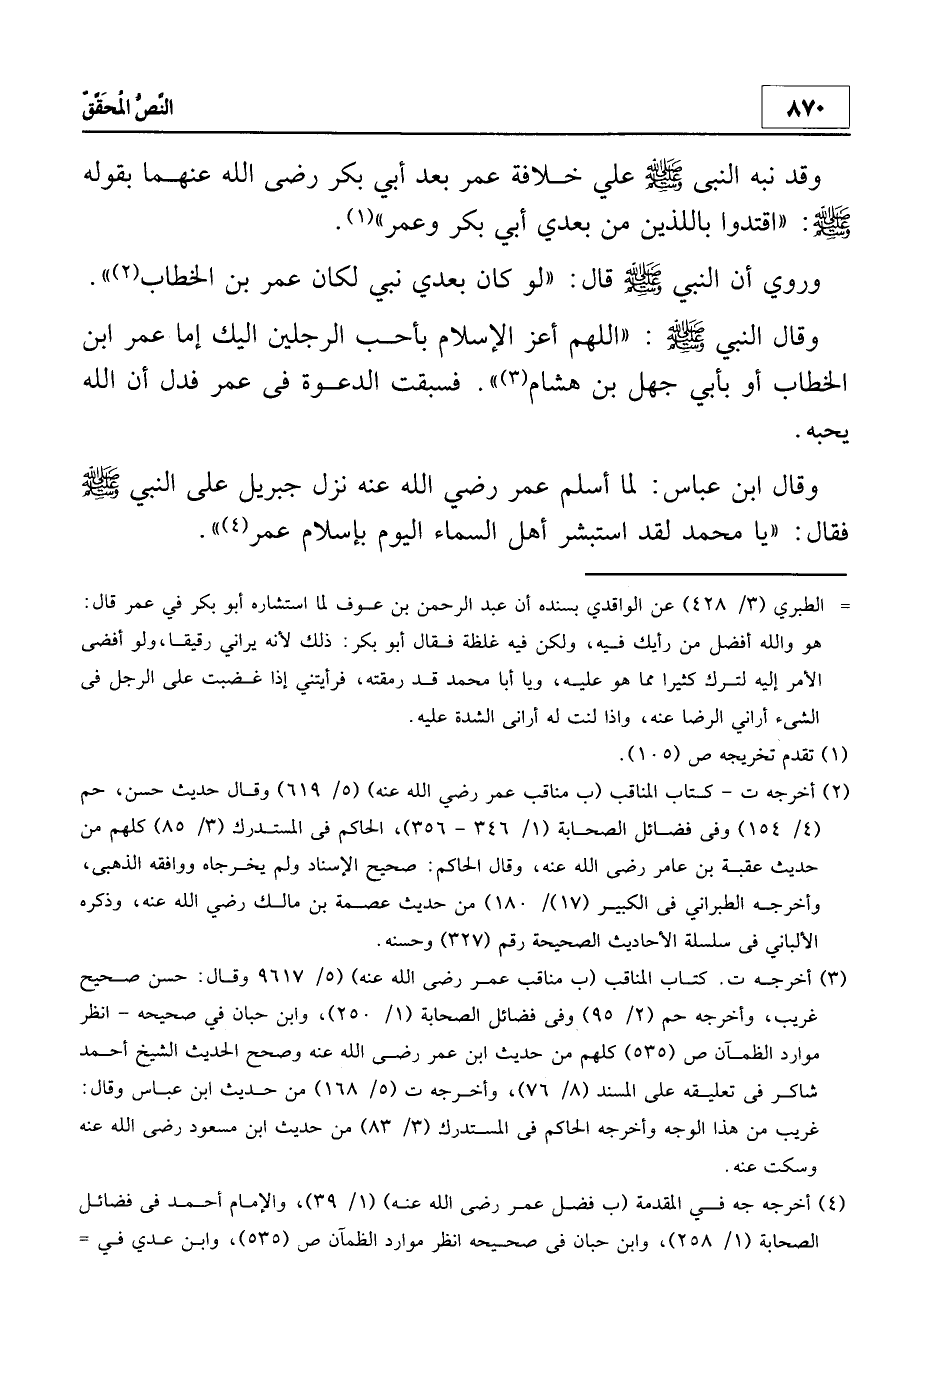 ٨٧٠
النَّصُّ المُحَقَّقُ
وقد نبه النبى ﷺ علي خـلافة عمر بعد أبي بكر رضى الله عنهـما بقوله
ﷺ: «اقتدوا باللذين من بعدي أبي بكر وعمر»(١).
وروي أن النبي ﷺ قال: «لو كان بعدي نبي لكان عمر بن الخطاب(٢)».
وقال النبي ﷺ : «اللهم أعز الإسلام بأحـب الرجلين اليك إما عمر ابن
الخطاب أو بأبي جهل بن هشام(٣)». فسبقت الدعـوة فى عمر فدل أن الله
يحبه.
وقال ابن عباس: لما أسلم عمر رضي الله عنه نزل جبريل على النبي ﷺ
فقال: «يا محمد لقد استبشر أهل السماء اليوم بإسلام عمر(٤)».
= الطبري (٣/ ٤٢٨) عن الواقدي بسنده أن عبد الرحمن بن عـوف لما استشاره أبو بكر في عمر قال:
هو والله أفضل من رأيك فـيه، ولكن فيه غلظة فـقال أبو بكر: ذلك لأنه يراني رقيقـا،ولو أفضى
الأمر إليه لتـرك كثيرا مما هو عليـه، ويا أبا محمد قـد رمقته، فرأيتني إذا غـضبت على الرجل فى
الشىء أراني الرضا عنه، واذا لنت له أرانى الشدة عليه.
(١) تقدم تخريجه ص (١٠٥).
(٢) أخرجه ت - كـتاب المناقب (ب مناقب عمر رضي الله عنه) (٥/ ٦١٩) وقـال حديث حسن، حم
(٤/ ١٥٤) وفى فضـائل الصحـابة (١/ ٣٤٦ - ٣٥٦)، الحاكم فى المستدرك (٣/ ٨٥) كلهم من
حديث عقبـة بن عامر رضى الله عنه، وقال الحاكم: صحيح الإسناد ولم يخـرجاه ووافقه الذهبى،
وأخرجـه الطبراني فى الكبيـر (١٧)/ ١٨٠) من حديث عصـمة بن مالـك رضي الله عنه، وذكره
الألباني فى سلسلة الأحاديث الصحيحة رقم (٣٢٧) وحسنه.
(٣) أخرجـه ت. كتـاب المناقب (ب مناقب عمـر رضى الله عنه) (٥/ ٩٦١٧ وقـال: حسن صـحيح
غريب، وأخرجه حم (٢/ ٩٥) وفى فضائل الصحابة (١/ ٢٥٠)، وابن حبان في صحيحه - انظر
موارد الظمـآن ص (٥٣٥) كلهم من حديث ابن عمر رضـى الله عنه وصحح الحديث الشيخ أحـمد
شاكـر فى تعليـقه على المسند (٨/ ٧٦)، وأخـرجه ت (٥/ ١٦٨) من حـديث ابن عبـاس وقال:
غريب من هذا الوجه وأخرجه الحاكم فى المستدرك (٣/ ٨٣) من حديث ابن مسعود رضى الله عنه
وسكت عنه.
(٤) أخرجه جه فـي المقدمة (ب فضل عمـر رضى الله عنـه) (١/ ٣٩)، والإمام أحـمد فى فضائـل
الصحابة (١/ ٢٥٨)، وابن حبان فى صحـيحه انظر موارد الظمآن ص (٥٣٥)، وابـن عدي فـي =